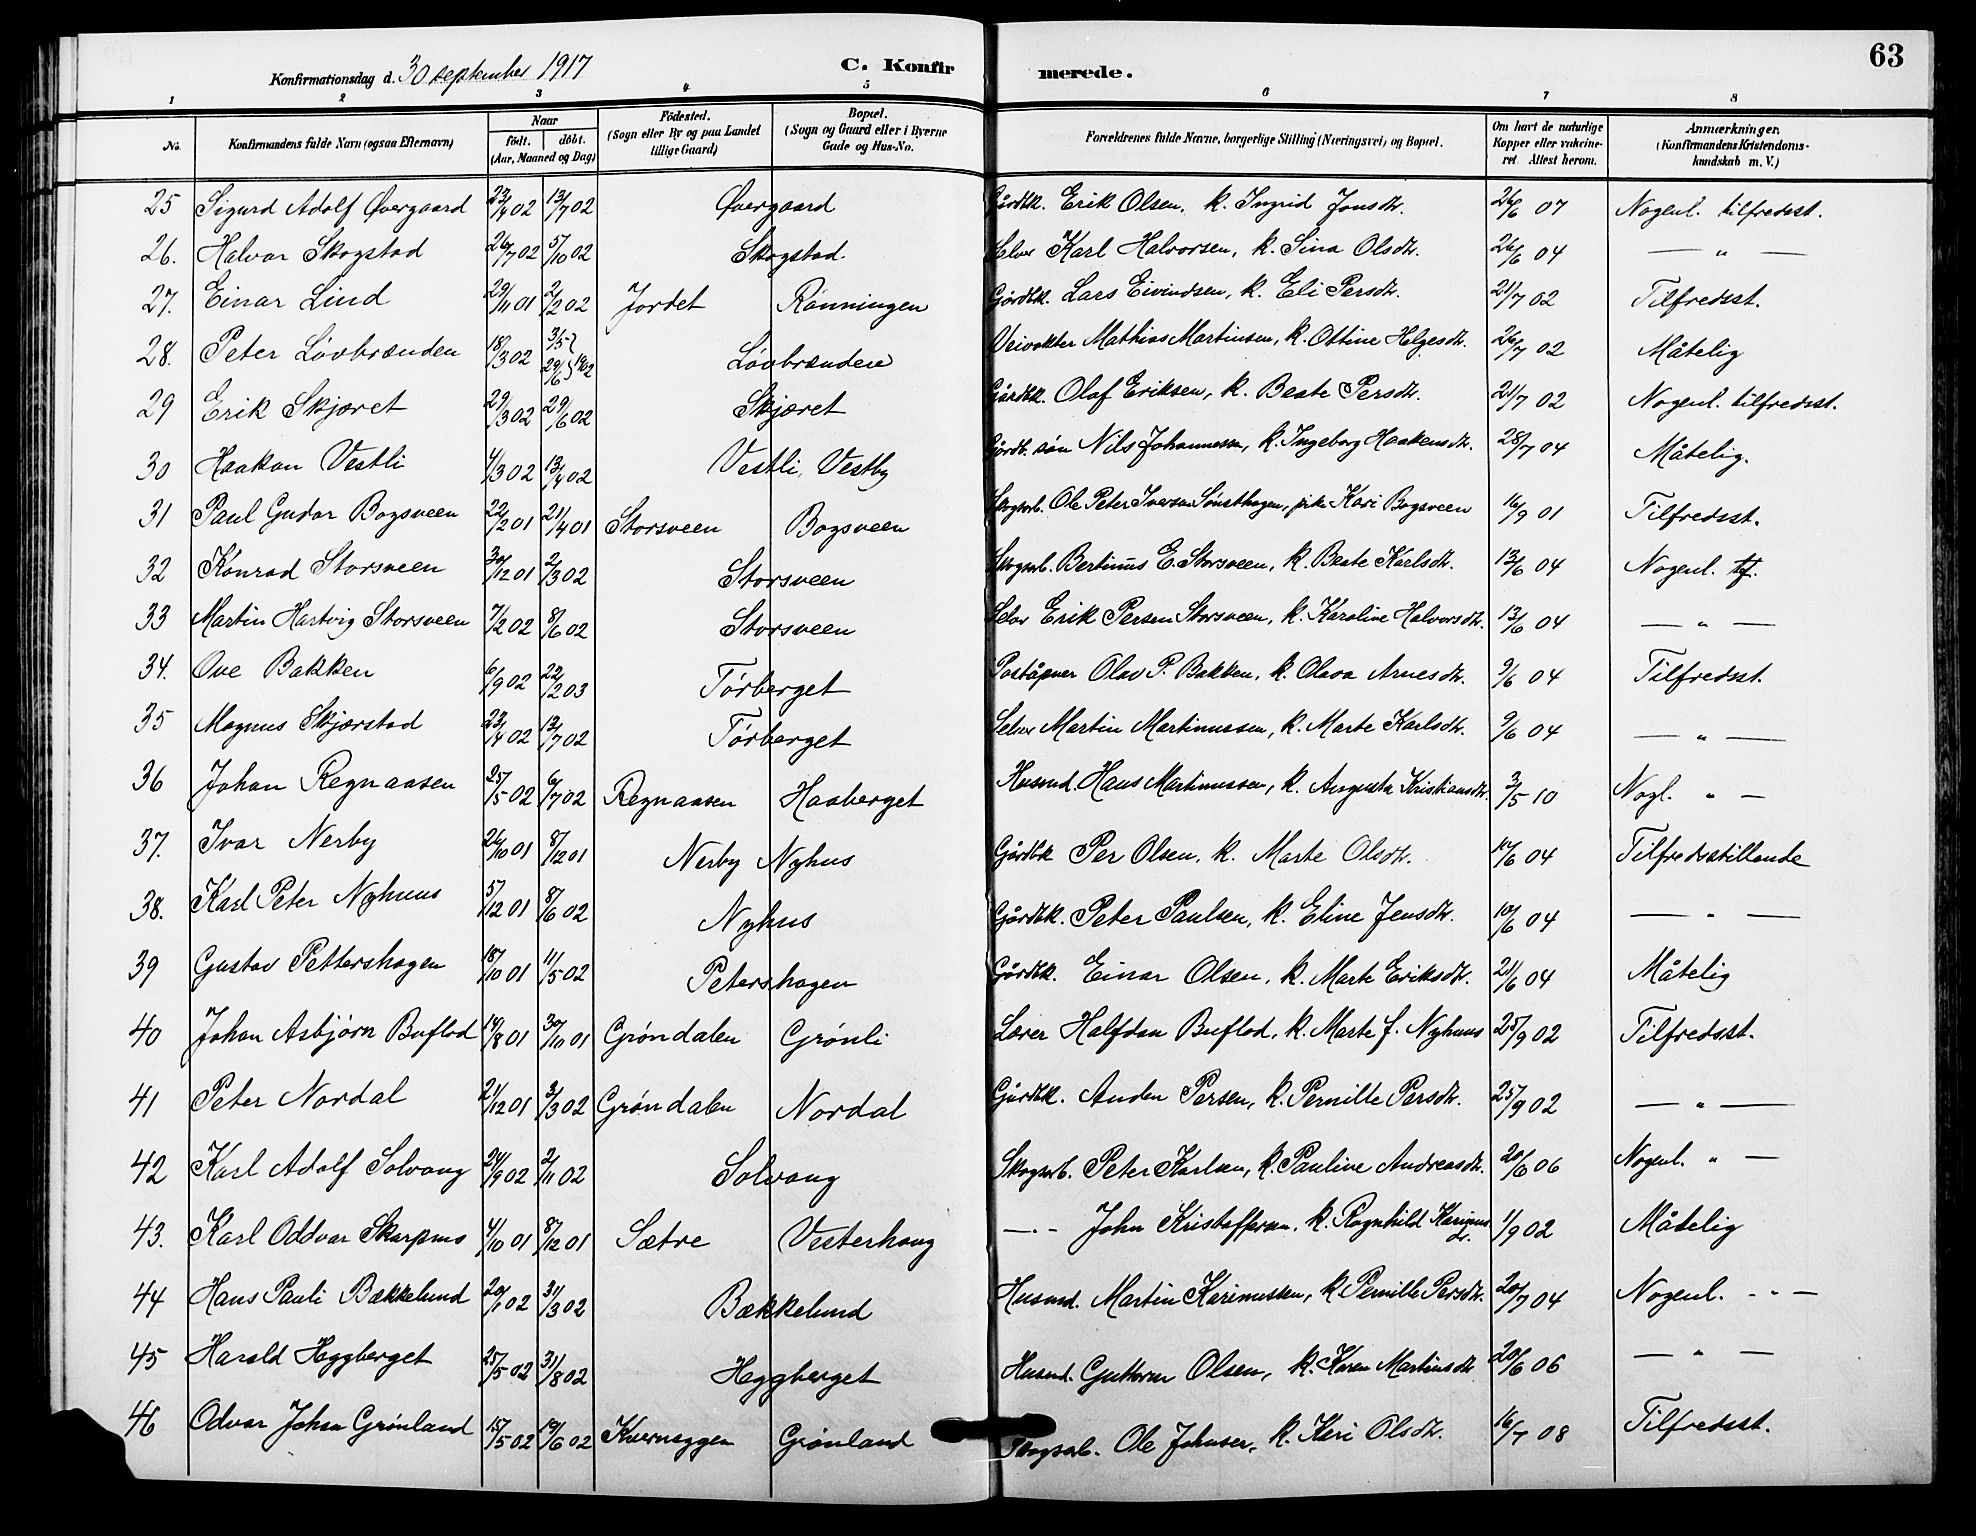 63
Konfirmationsdag d. 30 september 1917 C. Konfirmerede.
1 2 3 4 5 6 7 8
No. Konfirmandens fulde Navn (ogsaa Efternavn) Naar født. døbt. (Aar, Maaned og Dag) Fødested. (Sogn eller By og paa Landet tillige Gaard) Bopæl. (Sogn og Gaard eller i Byerne Gade og Hus-No. Forældrenes fulde Navne, borgerlige Stilling (Næringsvei) og Bopæl. Om havt de naturlige Kopper eller vakcineret. Attest herom. Anmærkninger. (Konfirmandens Kristendomskundskab m. V.)
25 Sigurd Adolf Øvergaard 23/4 02 13/7 02 Øvergaard Gårdbk. Erik Olsen, k. Ingrid Jonsdtr. 26/6 07 Nogenl. tilfredsst.
26. Halvar Skogstad 26/7 02 5/10 02 Skogstad Selve Karl Halvorsen, k. Sina Olsdtr. 26/6 04 — " —
27. Einar Lind 29/11 01 2/2 02 Jordet Rønningen Gårdbk. Lars Eivindsen, k. Eli Persdtr. 21/7 02 Tilfredsst.
28. Peter Løvbrænden 18/3 02 3/5 29/6 } 1902 Løvbrænden Veivokter Mathias Martinsen, k. Ottine Helgesdtr. 26/7 02 Måtelig
29 Erik Skjæret 29/3 02 29/6 02 Skjæret Gårdbk. Olaf Eriksen, k. Beate Persdtr. 21/7 02 Nogenl. tilfredsst.
30 Haakon Vestli 4/3 02 13/4 02 Vestli, Vestby Gårdb. søn Nils Johannessen, k. Ingeborg Haakensdtr. 28/7 04 Måtelig.
31 Paul Gudar Bogsveen 22/2 01 21/4 01 Storsveen Bogsveen Skogsarb. Ole Peter Iversen Sønsthagen, pike Kari Bogsveen 16/9 01 Tilfredsst.
32 Konrad Storsveen 30/12 01 2/3 02 Storsveen Skogsarb. Bertinus E. Storsveen, k. Beate Karlsdtr. 13/6 04 Nogenl. tf.
33 Martin Hartvig Storsveen 7/2 02 8/6 02 Storsveen Selve Erik Persen Storsveen, k. Karoline Halvorsdtr. 13/6 04 — " —
34. Ove Bakken 6/9 02 22/2 03 Tørberget Poståpner Olav P. Bakken, k. Olava Arnesdtr. 9/6 04 Tilfredsst.
35 Magnus Skjærstad 23/4 02 13/7 02 Tørberget Selve Martin Martinussen, k. Marte Karlsdtr. 9/6 04 — " —
36 Johan Regnaasen 25/5 02 6/7 02 Regnaasen Haaberget Husmd. Hans Martinussen, k. Augusta Kristiansdtr. 3/5 10 Nogl. " —
37. Ivar Nerby 26/10 01 8/12 01 Nerby Nyhus Gårdbk Per Olsen, k. Marte Olsdtr. 10/6 04 Tilfredsstillende
38. Karl Peter Nyhuus 5/12 01 8/6 02 Nyhus Gårdbk. Peter Paulsen, k. Eline Jensdtr. 10/6 04 — " —
39 Gustav Pettershagen 18/10 01 11/5 02 Petershagen Gårdbk. Einar Olsen, k. Marte Eriksdtr. 21/6 04 Måtelig
40 Johan Asbjørn Buflod 14/8 01 30/10 01 Grøndalen Grønli Lærer Halfdan Buflod, k. Marte f. Nyhuus 25/9 02 Tilfredsst.
41 Peter Nordal 21/12 01 3/3 02 Grøndalen Nordal Gårdbk. Anden Persen, k. Pernille Persdtr. 25/9 02 — " —
42 Karl Adolf Solvang 24/9 02 2/11 02 Solvang Skogsarb. Peter Karlsen, k. Pauline Andreasdtr. 20/6 06 Nogenl. " —
43. Karl Oddvar Skarpnes 4/10 01 8/12 01 Sætre Vesterhaug — " — John Kristoffersen, k. Ragnhild Karinusdr. 1/9 02 Måtelig
44 Hans Pauli Bækkelund 20/1 02 31/3 02 Bækkelund Husmd. Martin Karinussen, k. Pernille Persdtr. 20/7 04 Nogenl. - " —
45 Harald Heggberget 25/5 02 31/8 02 Heggberget Husmd. Guttorm Olsen, k. Karen Martinsdtr 20/6 06 — " —
46 Odvar Johan Grønland 15/5 02 19/6 02 Kværnæggen Grønland Skogsarb. Ole Johnsen, k. Kari Olsdtr. 16/7 08 Tilfredsst.